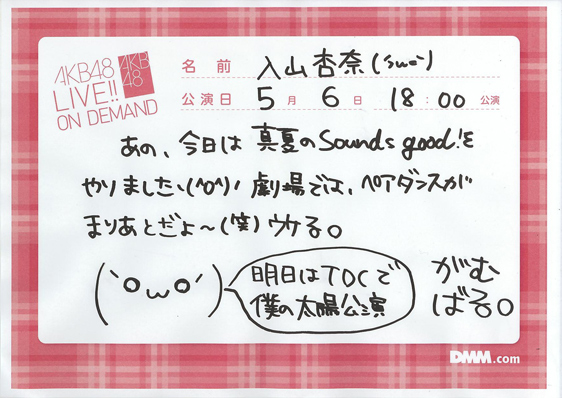 AKB48
LIVE!!
ON DEMAND
AKB
48
名前 入山杏奈(´ω`)
公演日 5月6日 18:00公演
あの、今日は真夏のSounds good!を
やりました\(^o^)/ 劇場では、ペアダンスが
まりあとだよ〜(笑)ウケる。
(`oωo´)
明日はTDCで
僕の太陽公演
がむ
ばる。
DMM.com